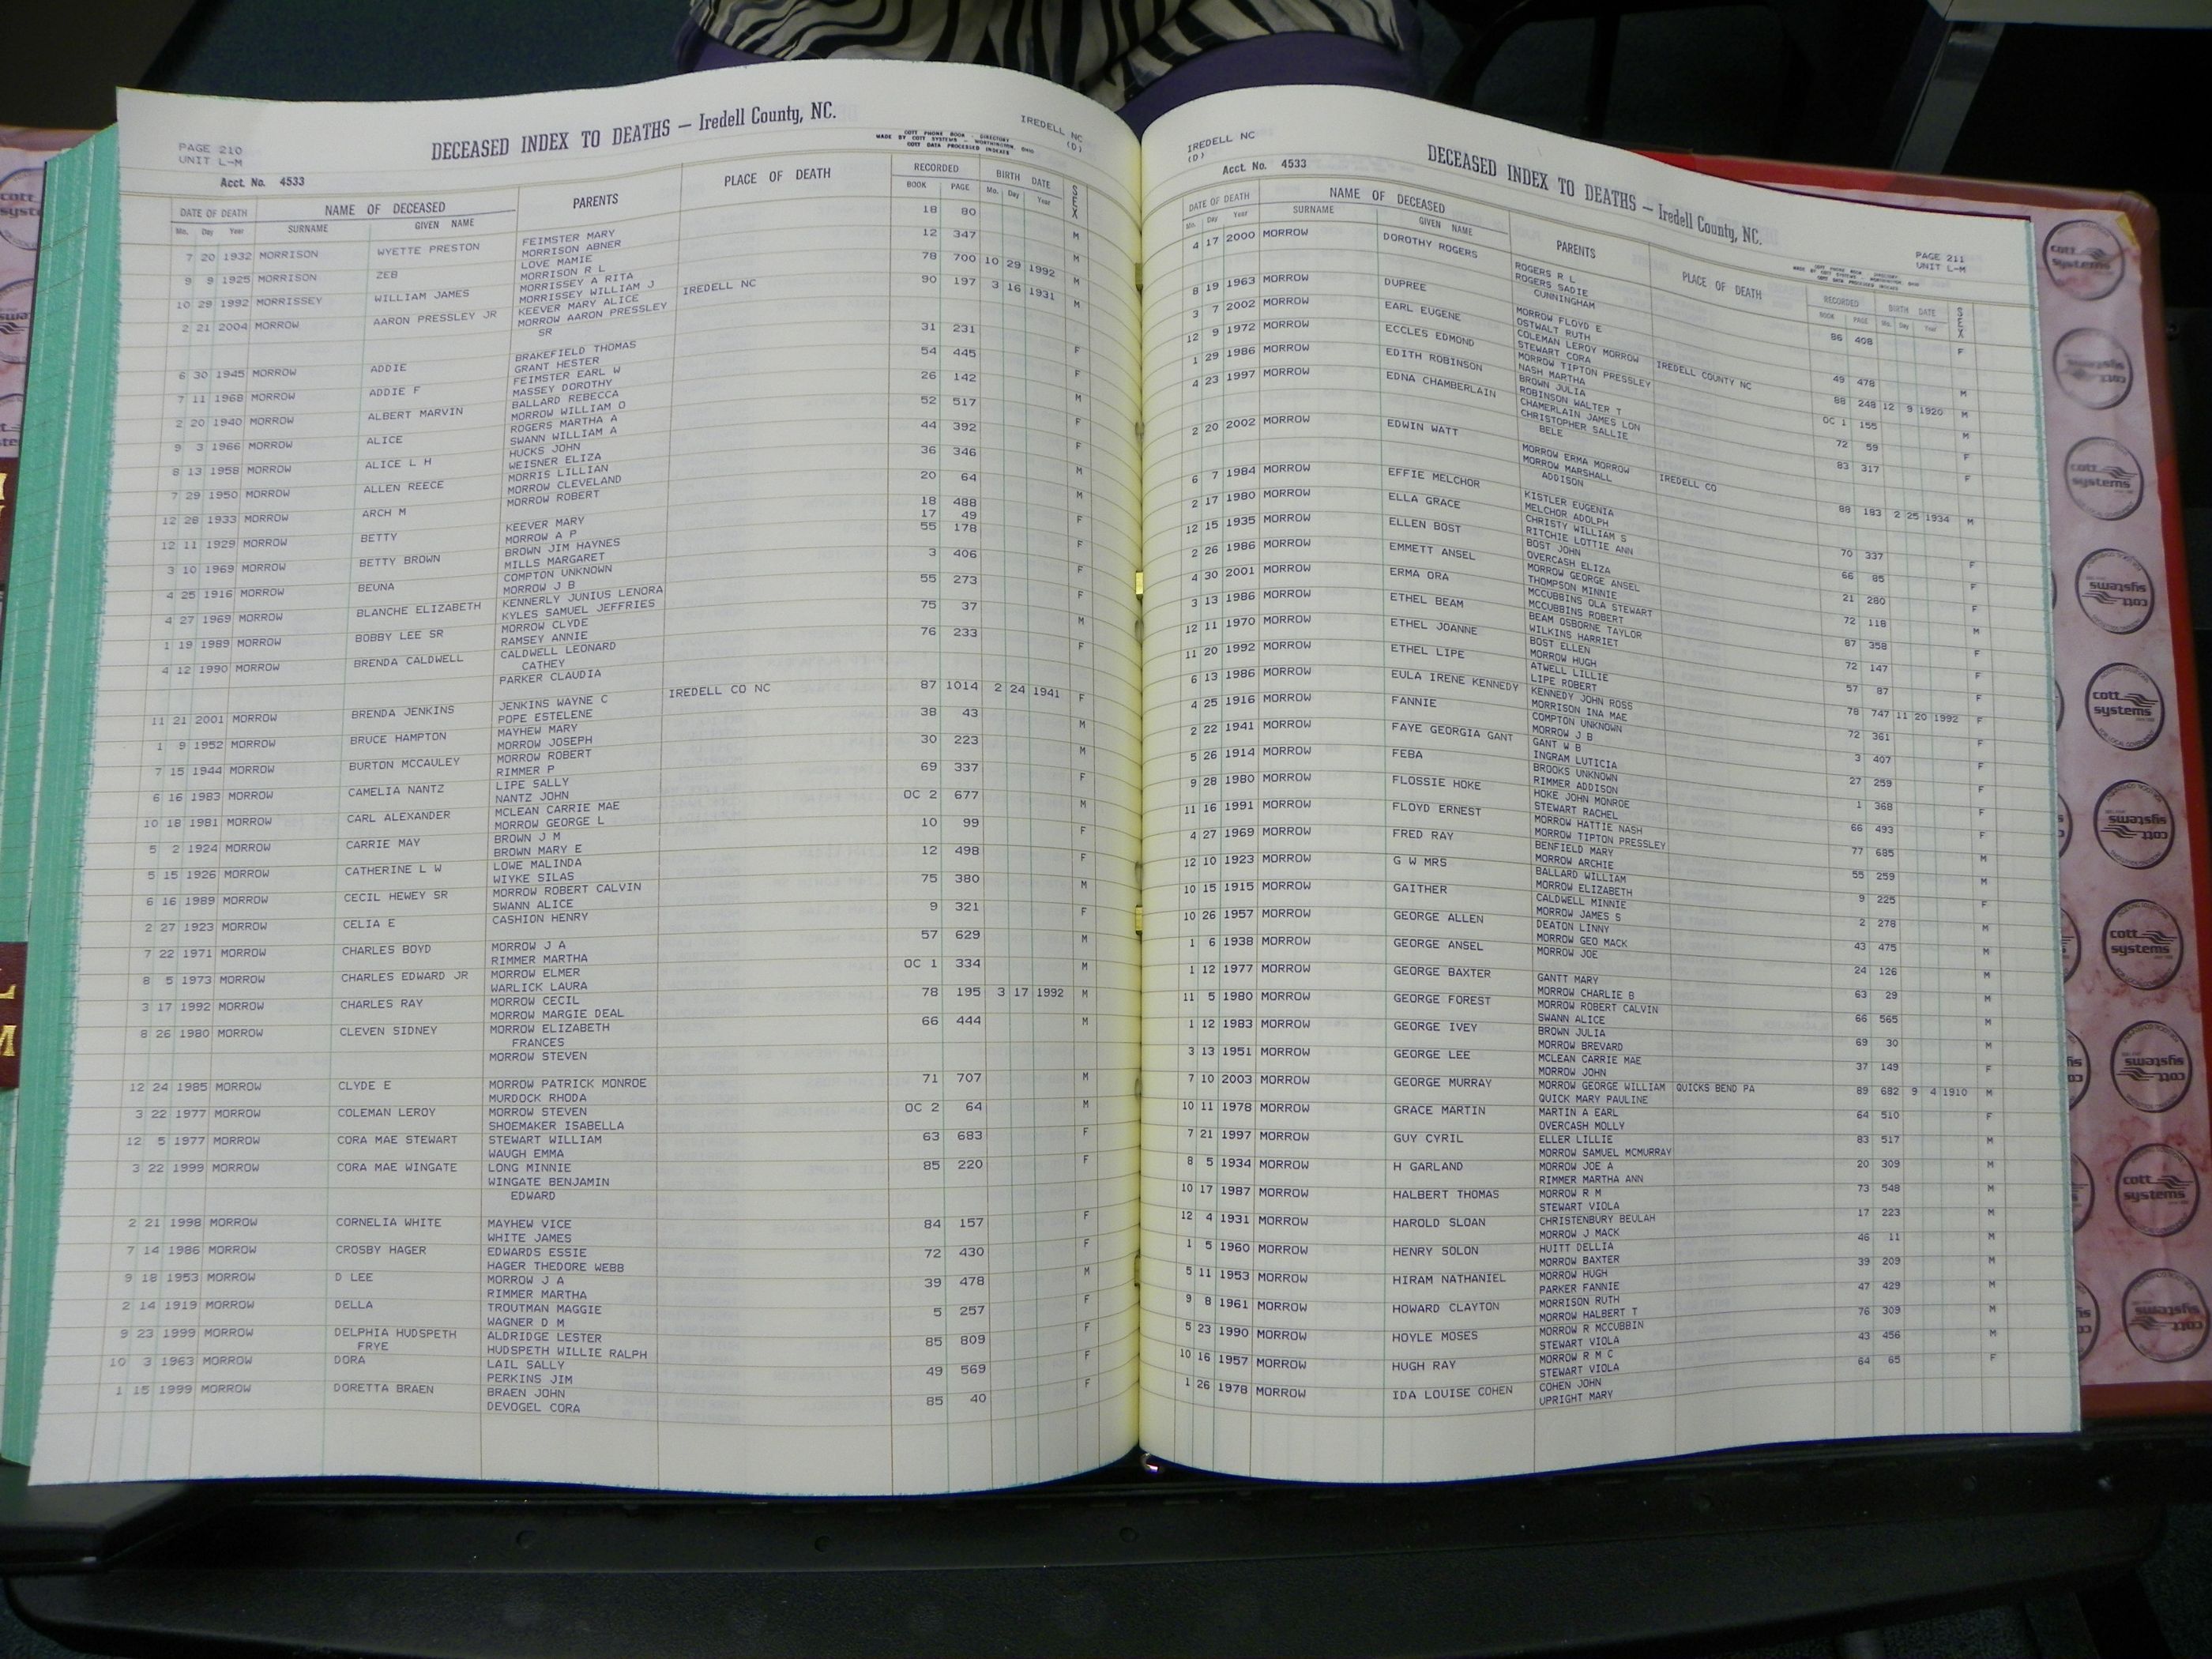 PAGE 210
UNIT L-M
DECEASED INDEX TO DEATHS — Iredell County, NC.
IREDELL NC
(D)
COTT PHONE BOOK - DIRECTORY
MADE BY COTT SYSTEMS - WORTHINGTON, OHIO
COTT DATA PROCESSED INDEXES
Acct. No. 4533
DATE OF DEATH NAME OF DECEASED PARENTS PLACE OF DEATH RECORDED BIRTH DATE SEX
Mo. Day Year SURNAME GIVEN NAME BOOK PAGE Mo. Day Year
7 20 1932 MORRISON WYETTE PRESTON FEIMSTER MARY 18 80 M
MORRISON ABNER
9 9 1925 MORRISON ZEB LOVE MAMIE 12 347 M
MORRISON R L
10 29 1992 MORRISSEY WILLIAM JAMES MORRISSEY A RITA 78 700 10 29 1992 M
MORRISSEY WILLIAM J
2 21 2004 MORROW AARON PRESSLEY JR KEEVER MARY ALICE IREDELL NC 90 197 3 16 1931 M
MORROW AARON PRESSLEY
SR
6 30 1945 MORROW ADDIE BRAKEFIELD THOMAS 31 231 F
GRANT HESTER
7 11 1968 MORROW ADDIE F FEIMSTER EARL W 54 445 F
MASSEY DOROTHY
2 20 1940 MORROW ALBERT MARVIN BALLARD REBECCA 26 142 M
MORROW WILLIAM O
9 3 1966 MORROW ALICE ROGERS MARTHA A 52 517 F
SWANN WILLIAM A
8 13 1958 MORROW ALICE L H HUCKS JOHN 44 392 F
WEISNER ELIZA
7 29 1950 MORROW ALLEN REECE MORRIS LILLIAN 36 346 M
MORROW CLEVELAND
12 28 1933 MORROW ARCH M MORROW ROBERT 20 64 M
12 11 1929 MORROW BETTY KEEVER MARY 18 488 F
MORROW A P 17 49
3 10 1969 MORROW BETTY BROWN BROWN JIM HAYNES 55 178 F
MILLS MARGARET
4 25 1916 MORROW BEUNA COMPTON UNKNOWN 3 406 F
MORROW J B
4 27 1969 MORROW BLANCHE ELIZABETH KENNERLY JUNIUS LENORA 55 273 F
KYLES SAMUEL JEFFRIES
1 19 1989 MORROW BOBBY LEE SR MORROW CLYDE 75 37 M
RAMSEY ANNIE
4 12 1990 MORROW BRENDA CALDWELL CALDWELL LEONARD 76 233 F
CATHEY
PARKER CLAUDIA
11 21 2001 MORROW BRENDA JENKINS JENKINS WAYNE C IREDELL CO NC 87 1014 2 24 1941 F
POPE ESTELENE
1 9 1952 MORROW BRUCE HAMPTON MAYHEW MARY 38 43 M
MORROW JOSEPH
7 15 1944 MORROW BURTON MCCAULEY MORROW ROBERT 30 223 M
RIMMER P
6 16 1983 MORROW CAMELIA NANTZ LIPE SALLY 69 337 F
NANTZ JOHN
10 18 1981 MORROW CARL ALEXANDER MCLEAN CARRIE MAE OC 2 677 M
MORROW GEORGE L
5 2 1924 MORROW CARRIE MAY BROWN J M 10 99 F
BROWN MARY E
5 15 1926 MORROW CATHERINE L W LOWE MALINDA 12 498 F
WIYKE SILAS
6 16 1989 MORROW CECIL HEWEY SR MORROW ROBERT CALVIN 75 380 M
SWANN ALICE
2 27 1923 MORROW CELIA E CASHION HENRY 9 321 F
7 22 1971 MORROW CHARLES BOYD MORROW J A 57 629 M
RIMMER MARTHA
8 5 1973 MORROW CHARLES EDWARD JR MORROW ELMER OC 1 334 M
WARLICK LAURA
3 17 1992 MORROW CHARLES RAY MORROW CECIL 78 195 3 17 1992 M
MORROW MARGIE DEAL
8 26 1980 MORROW CLEVEN SIDNEY MORROW ELIZABETH 66 444 M
FRANCES
MORROW STEVEN
12 24 1985 MORROW CLYDE E MORROW PATRICK MONROE 71 707 M
MURDOCK RHODA
3 22 1977 MORROW COLEMAN LEROY MORROW STEVEN OC 2 64 M
SHOEMAKER ISABELLA
12 5 1977 MORROW CORA MAE STEWART STEWART WILLIAM 63 683 F
WAUGH EMMA
3 22 1999 MORROW CORA MAE WINGATE LONG MINNIE 85 220 F
WINGATE BENJAMIN
EDWARD
2 21 1998 MORROW CORNELIA WHITE MAYHEW VICE 84 157 F
WHITE JAMES
7 14 1986 MORROW CROSBY HAGER EDWARDS ESSIE 72 430 F
HAGER THEDORE WEBB
9 18 1953 MORROW D LEE MORROW J A 39 478 M
RIMMER MARTHA
2 14 1919 MORROW DELLA TROUTMAN MAGGIE 5 257 F
WAGNER D M
9 23 1999 MORROW DELPHIA HUDSPETH ALDRIDGE LESTER 85 809 F
FRYE HUDSPETH WILLIE RALPH
10 3 1963 MORROW DORA LAIL SALLY 49 569 F
PERKINS JIM
1 15 1999 MORROW DORETTA BRAEN BRAEN JOHN 85 40 F
DEVOGEL CORA
IREDELL NC
(D)
DECEASED INDEX TO DEATHS — Iredell County, NC.
PAGE 211
UNIT L-M
Acct. No. 4533
COTT PHONE BOOK - DIRECTORY
MADE BY COTT SYSTEMS - WORTHINGTON, OHIO
COTT DATA PROCESSED INDEXES
DATE OF DEATH NAME OF DECEASED PARENTS PLACE OF DEATH RECORDED BIRTH DATE SEX
Mo. Day Year SURNAME GIVEN NAME BOOK PAGE Mo. Day Year
4 17 2000 MORROW DOROTHY ROGERS ROGERS R L 86 408 F
ROGERS SADIE
CUNNINGHAM
8 19 1963 MORROW DUPREE MORROW FLOYD E 49 478 M
OSTWALT RUTH
3 7 2002 MORROW EARL EUGENE COLEMAN LEROY MORROW IREDELL COUNTY NC 88 248 12 9 1920 M
STEWART CORA
12 9 1972 MORROW ECCLES EDMOND MORROW TIPTON PRESSLEY OC 1 155 M
NASH MARTHA
1 29 1986 MORROW EDITH ROBINSON BROWN JULIA 72 59 F
ROBINSON WALTER T
4 23 1997 MORROW EDNA CHAMBERLAIN CHAMERLAIN JAMES LON 83 317 F
CHRISTOPHER SALLIE
BELE
2 20 2002 MORROW EDWIN WATT MORROW ERMA MORROW IREDELL CO 88 183 2 25 1934 M
MORROW MARSHALL
ADDISON
6 7 1984 MORROW EFFIE MELCHOR KISTLER EUGENIA 70 337 F
MELCHOR ADOLPH
2 17 1980 MORROW ELLA GRACE CHRISTY WILLIAM S 66 85 F
RITCHIE LOTTIE ANN
12 15 1935 MORROW ELLEN BOST BOST JOHN 21 280 F
OVERCASH ELIZA
2 26 1986 MORROW EMMETT ANSEL MORROW GEORGE ANSEL 72 118 M
THOMPSON MINNIE
4 30 2001 MORROW ERMA ORA MCCUBBINS OLA STEWART 87 358 F
MCCUBBINS ROBERT
3 13 1986 MORROW ETHEL BEAM BEAM OSBORNE TAYLOR 72 147 F
WILKINS HARRIET
12 11 1970 MORROW ETHEL JOANNE BOST ELLEN 57 87 F
MORROW HUGH
11 20 1992 MORROW ETHEL LIPE ATWELL LILLIE 78 747 11 20 1992 F
LIPE ROBERT
6 13 1986 MORROW EULA IRENE KENNEDY KENNEDY JOHN ROSS 72 361 F
MORRISON INA MAE
4 25 1916 MORROW FANNIE COMPTON UNKNOWN 3 407 F
MORROW J B
2 22 1941 MORROW FAYE GEORGIA GANT GANT W B 27 259 F
INGRAM LUTICIA
5 26 1914 MORROW FEBA BROOKS UNKNOWN 1 368 F
RIMMER ADDISON
9 28 1980 MORROW FLOSSIE HOKE HOKE JOHN MONROE 66 493 F
STEWART RACHEL
11 16 1991 MORROW FLOYD ERNEST MORROW HATTIE NASH 77 685 M
MORROW TIPTON PRESSLEY
4 27 1969 MORROW FRED RAY BENFIELD MARY 55 259 M
MORROW ARCHIE
12 10 1923 MORROW G W MRS BALLARD WILLIAM 9 225 F
MORROW ELIZABETH
10 15 1915 MORROW GAITHER CALDWELL MINNIE 2 278 M
MORROW JAMES S
10 26 1957 MORROW GEORGE ALLEN DEATON LINNY 43 475 M
MORROW GEO MACK
1 6 1938 MORROW GEORGE ANSEL MORROW JOE 24 126 M
1 12 1977 MORROW GEORGE BAXTER GANTT MARY 63 29 M
MORROW CHARLIE B
11 5 1980 MORROW GEORGE FOREST MORROW ROBERT CALVIN 66 565 M
SWANN ALICE
1 12 1983 MORROW GEORGE IVEY BROWN JULIA 69 30 M
MORROW BREVARD
3 13 1951 MORROW GEORGE LEE MCLEAN CARRIE MAE 37 149 F
MORROW JOHN
7 10 2003 MORROW GEORGE MURRAY MORROW GEORGE WILLIAM QUICKS BEND PA 89 682 9 4 1910 M
QUICK MARY PAULINE
10 11 1978 MORROW GRACE MARTIN MARTIN A EARL 64 510 F
OVERCASH MOLLY
7 21 1997 MORROW GUY CYRIL ELLER LILLIE 83 517 M
MORROW SAMUEL MCMURRAY
8 5 1934 MORROW H GARLAND MORROW JOE A 20 309 M
RIMMER MARTHA ANN
10 17 1987 MORROW HALBERT THOMAS MORROW R M 73 548 M
STEWART VIOLA
12 4 1931 MORROW HAROLD SLOAN CHRISTENBURY BEULAH 17 223 M
MORROW J MACK
1 5 1960 MORROW HENRY SOLON HUITT DELLIA 46 11 M
MORROW BAXTER
5 11 1953 MORROW HIRAM NATHANIEL MORROW HUGH 39 209 M
PARKER FANNIE
9 8 1961 MORROW HOWARD CLAYTON MORRISON RUTH 47 429 M
MORROW HALBERT T
5 23 1990 MORROW HOYLE MOSES MORROW R MCCUBBIN 76 309 M
STEWART VIOLA
10 16 1957 MORROW HUGH RAY MORROW R M C 43 456 M
STEWART VIOLA
1 26 1978 MORROW IDA LOUISE COHEN COHEN JOHN 64 65 F
UPRIGHT MARY
cott
systems